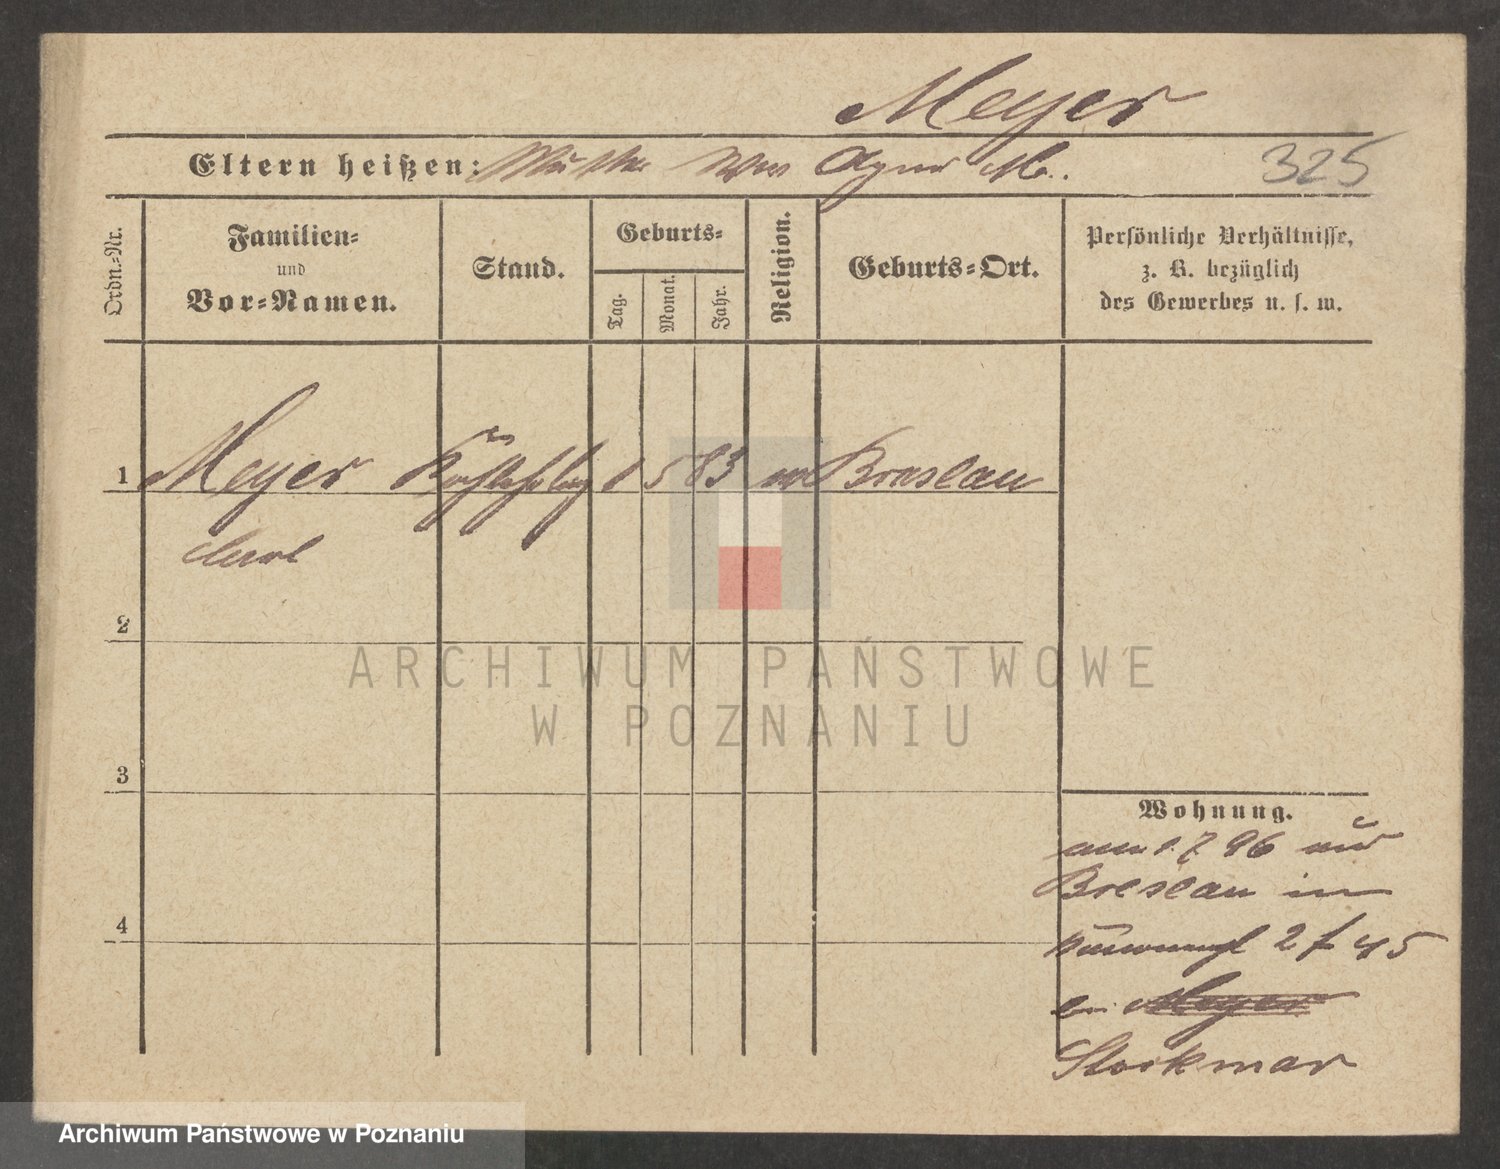 Meyer
Eltern heißen: Mutter Ww Agnes M.
325
Ordn.-Nr.
Familien-
und
Vor-Namen.
Stand.
Geburts-
Tag.
Monat.
Jahr.
Religion.
Geburts-Ort.
Persönliche Verhältnisse,
z. B. bezüglich
des Gewerbes u. s. w.
1 Meyer 1 5 83 Breslau
Carl
2
3
4
Wohnung.
am 1.7 96 aus
Breslau in
2 45
bei Meyer
Stockmar
ARCHIWUM PAŃSTWOWE
W POZNANIU
Archiwum Państwowe w Poznaniu